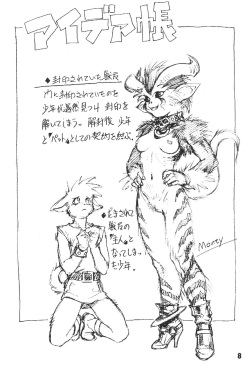 アイデア帳
◆封印されていた獣女
門に封印されていたものを
少年が偶然見つけ封印を
解いてしまう。解封後 少年
と『ペット』としての契約を結ぶ。
◆だまされて
獣女の
『主人』と
なってしまっ
た少年。
Monty
8